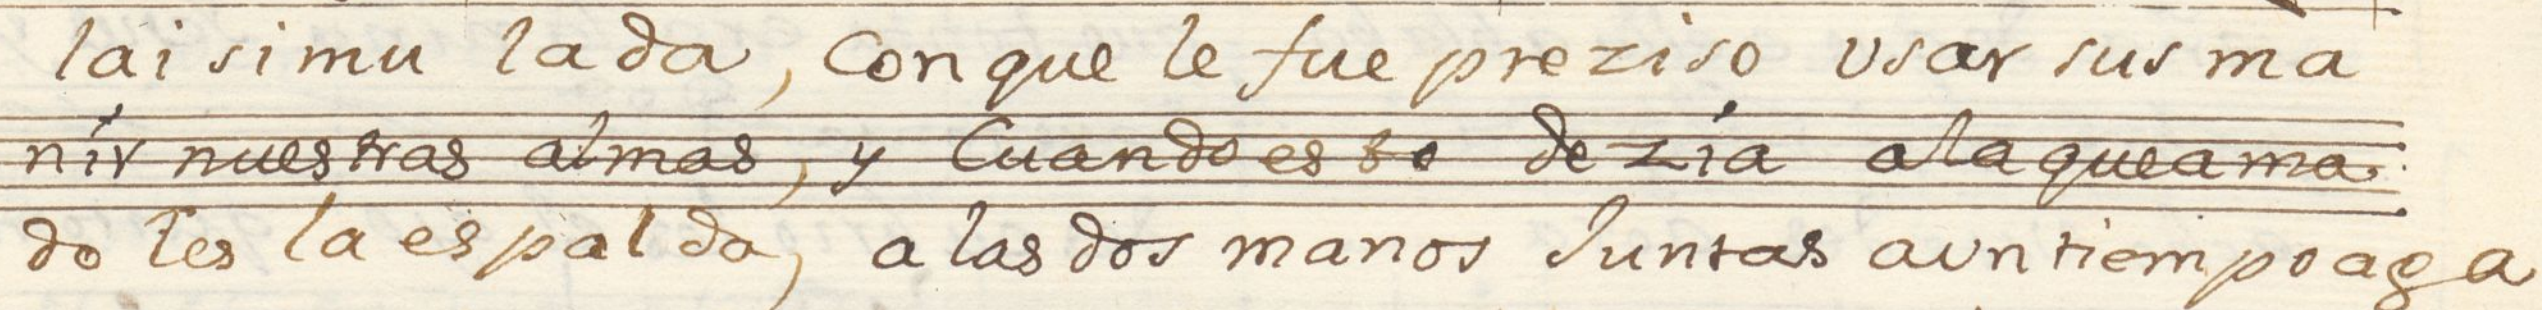 lai simu lada, Con que le fue preziso usar sus ma
nir nuestras almas, y Cuando esto dezia a la que ama
do les la espalda, a las dos manos Juntas aun tiempo aga